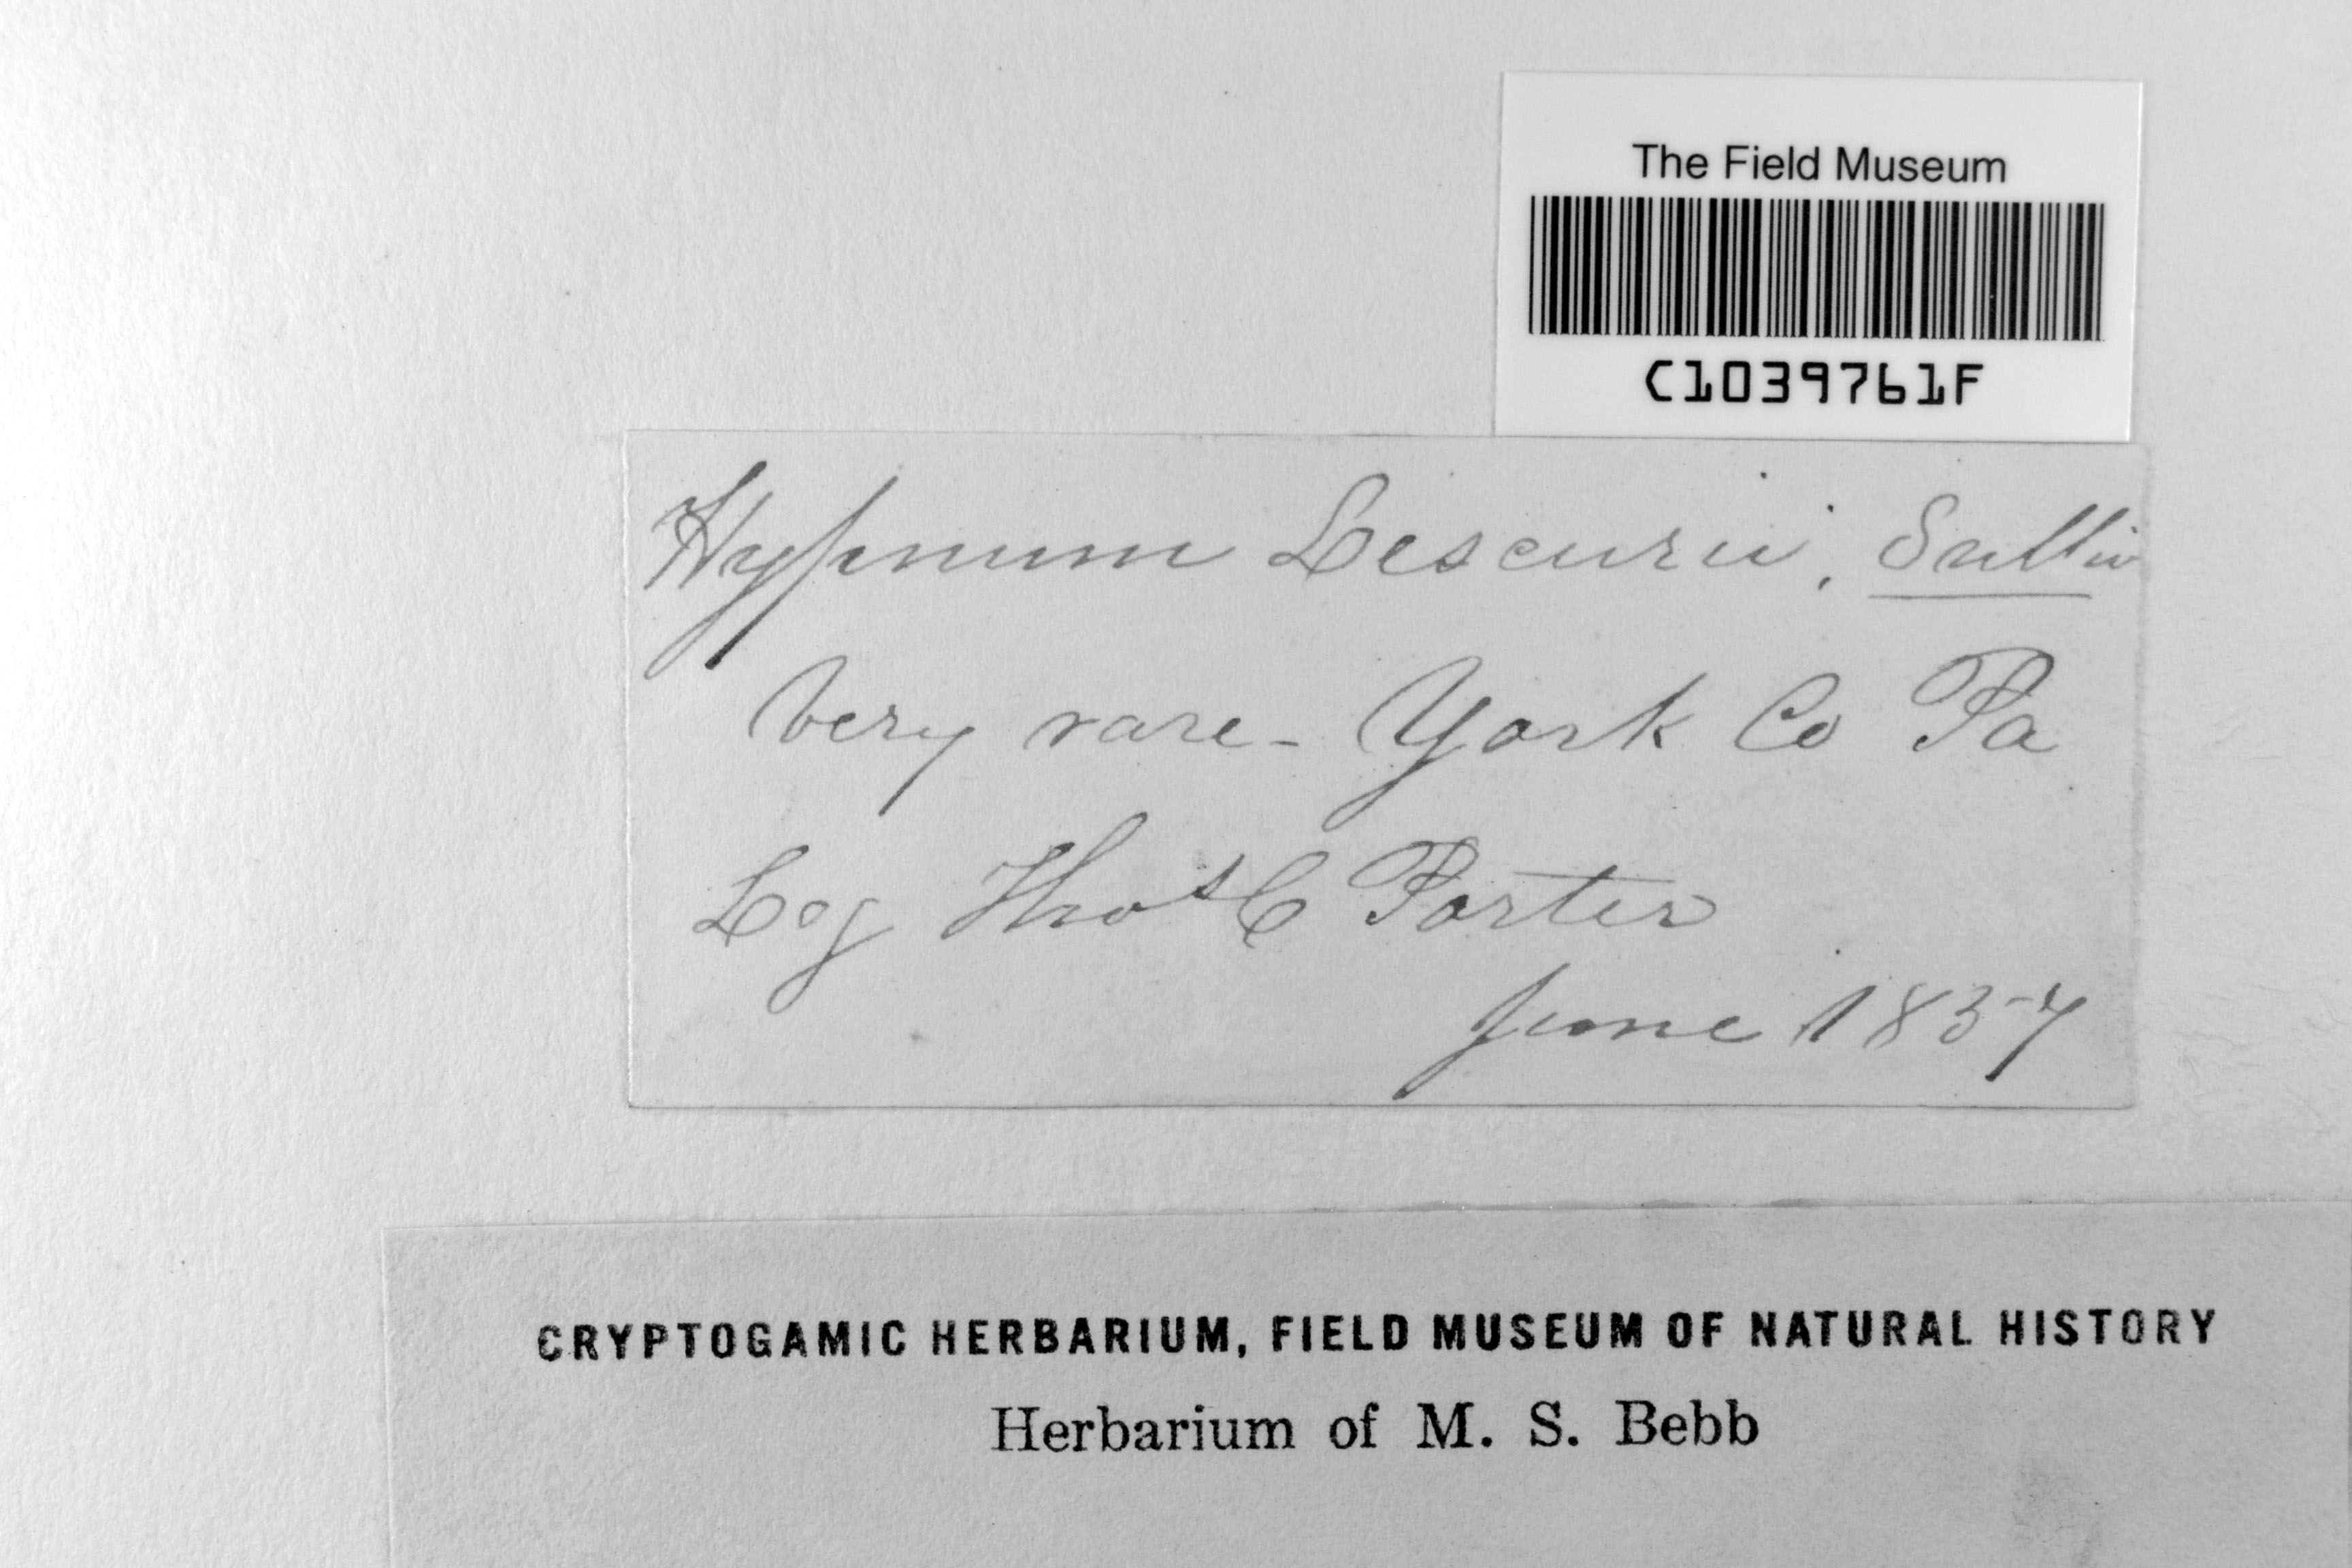 The Field Museum
C1039761F
Hypnum Lescurii, Sulliv
Very rare - York Co Pa
Leg Thos C Porter
June 1857
CRYPTOGAMIC HERBARIUM, FIELD MUSEUM OF NATURAL HISTORY
Herbarium of M. S. Bebb